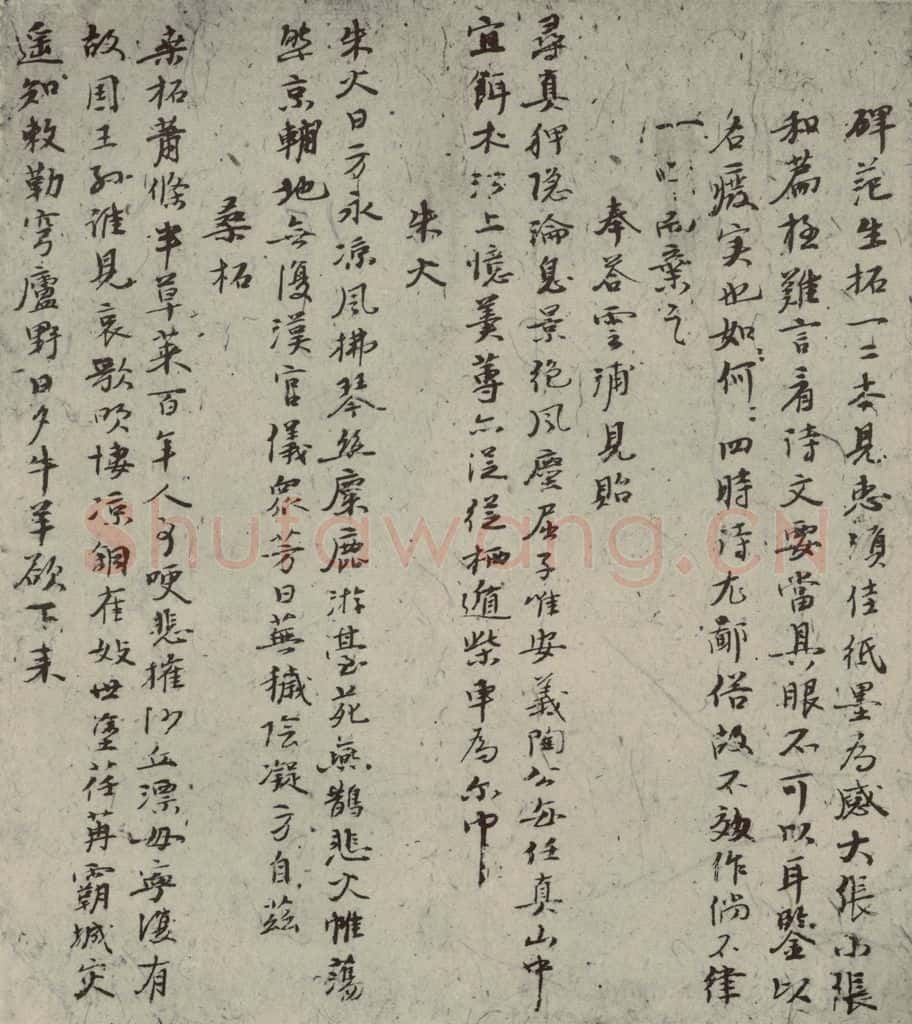 碑范生拓一二本見惠須佳紙墨為感大張小張
和篇極難言看詩文要當具眼不可以耳鑒以
名癈实也如何如何四時詩尤鄙俗故不效作倘不律
一一而棄之
奉荅雲浦見貽
尋真狎隐淪息景絶風塵屈子惟安義陶公每任真山中
宜餌术沙上憶羹蓴亦從栖遁柴車為尔巾
朱火
朱火日方永凉風拂琴絲麋鹿游臺苑燕鵲悲火帷蕩
然京輔地無復漢官儀衆芳日蕪穢陰凝方自兹
桑柘
桑柘蕭條半草萊百年人事哽悲摧沙丘漂母寧復有
故国王孫誰見哀歌哭悽凉銅雀妓世塗荏苒霸城灾
遥知敕勒穹廬野日夕牛羊欲下来
Shufawang.CN